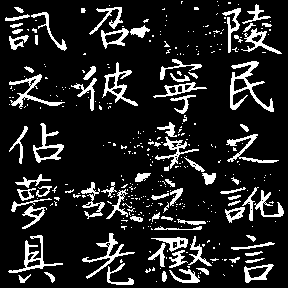 陵民之訛言
寧莫之懲
召彼故老
訊之佔夢具